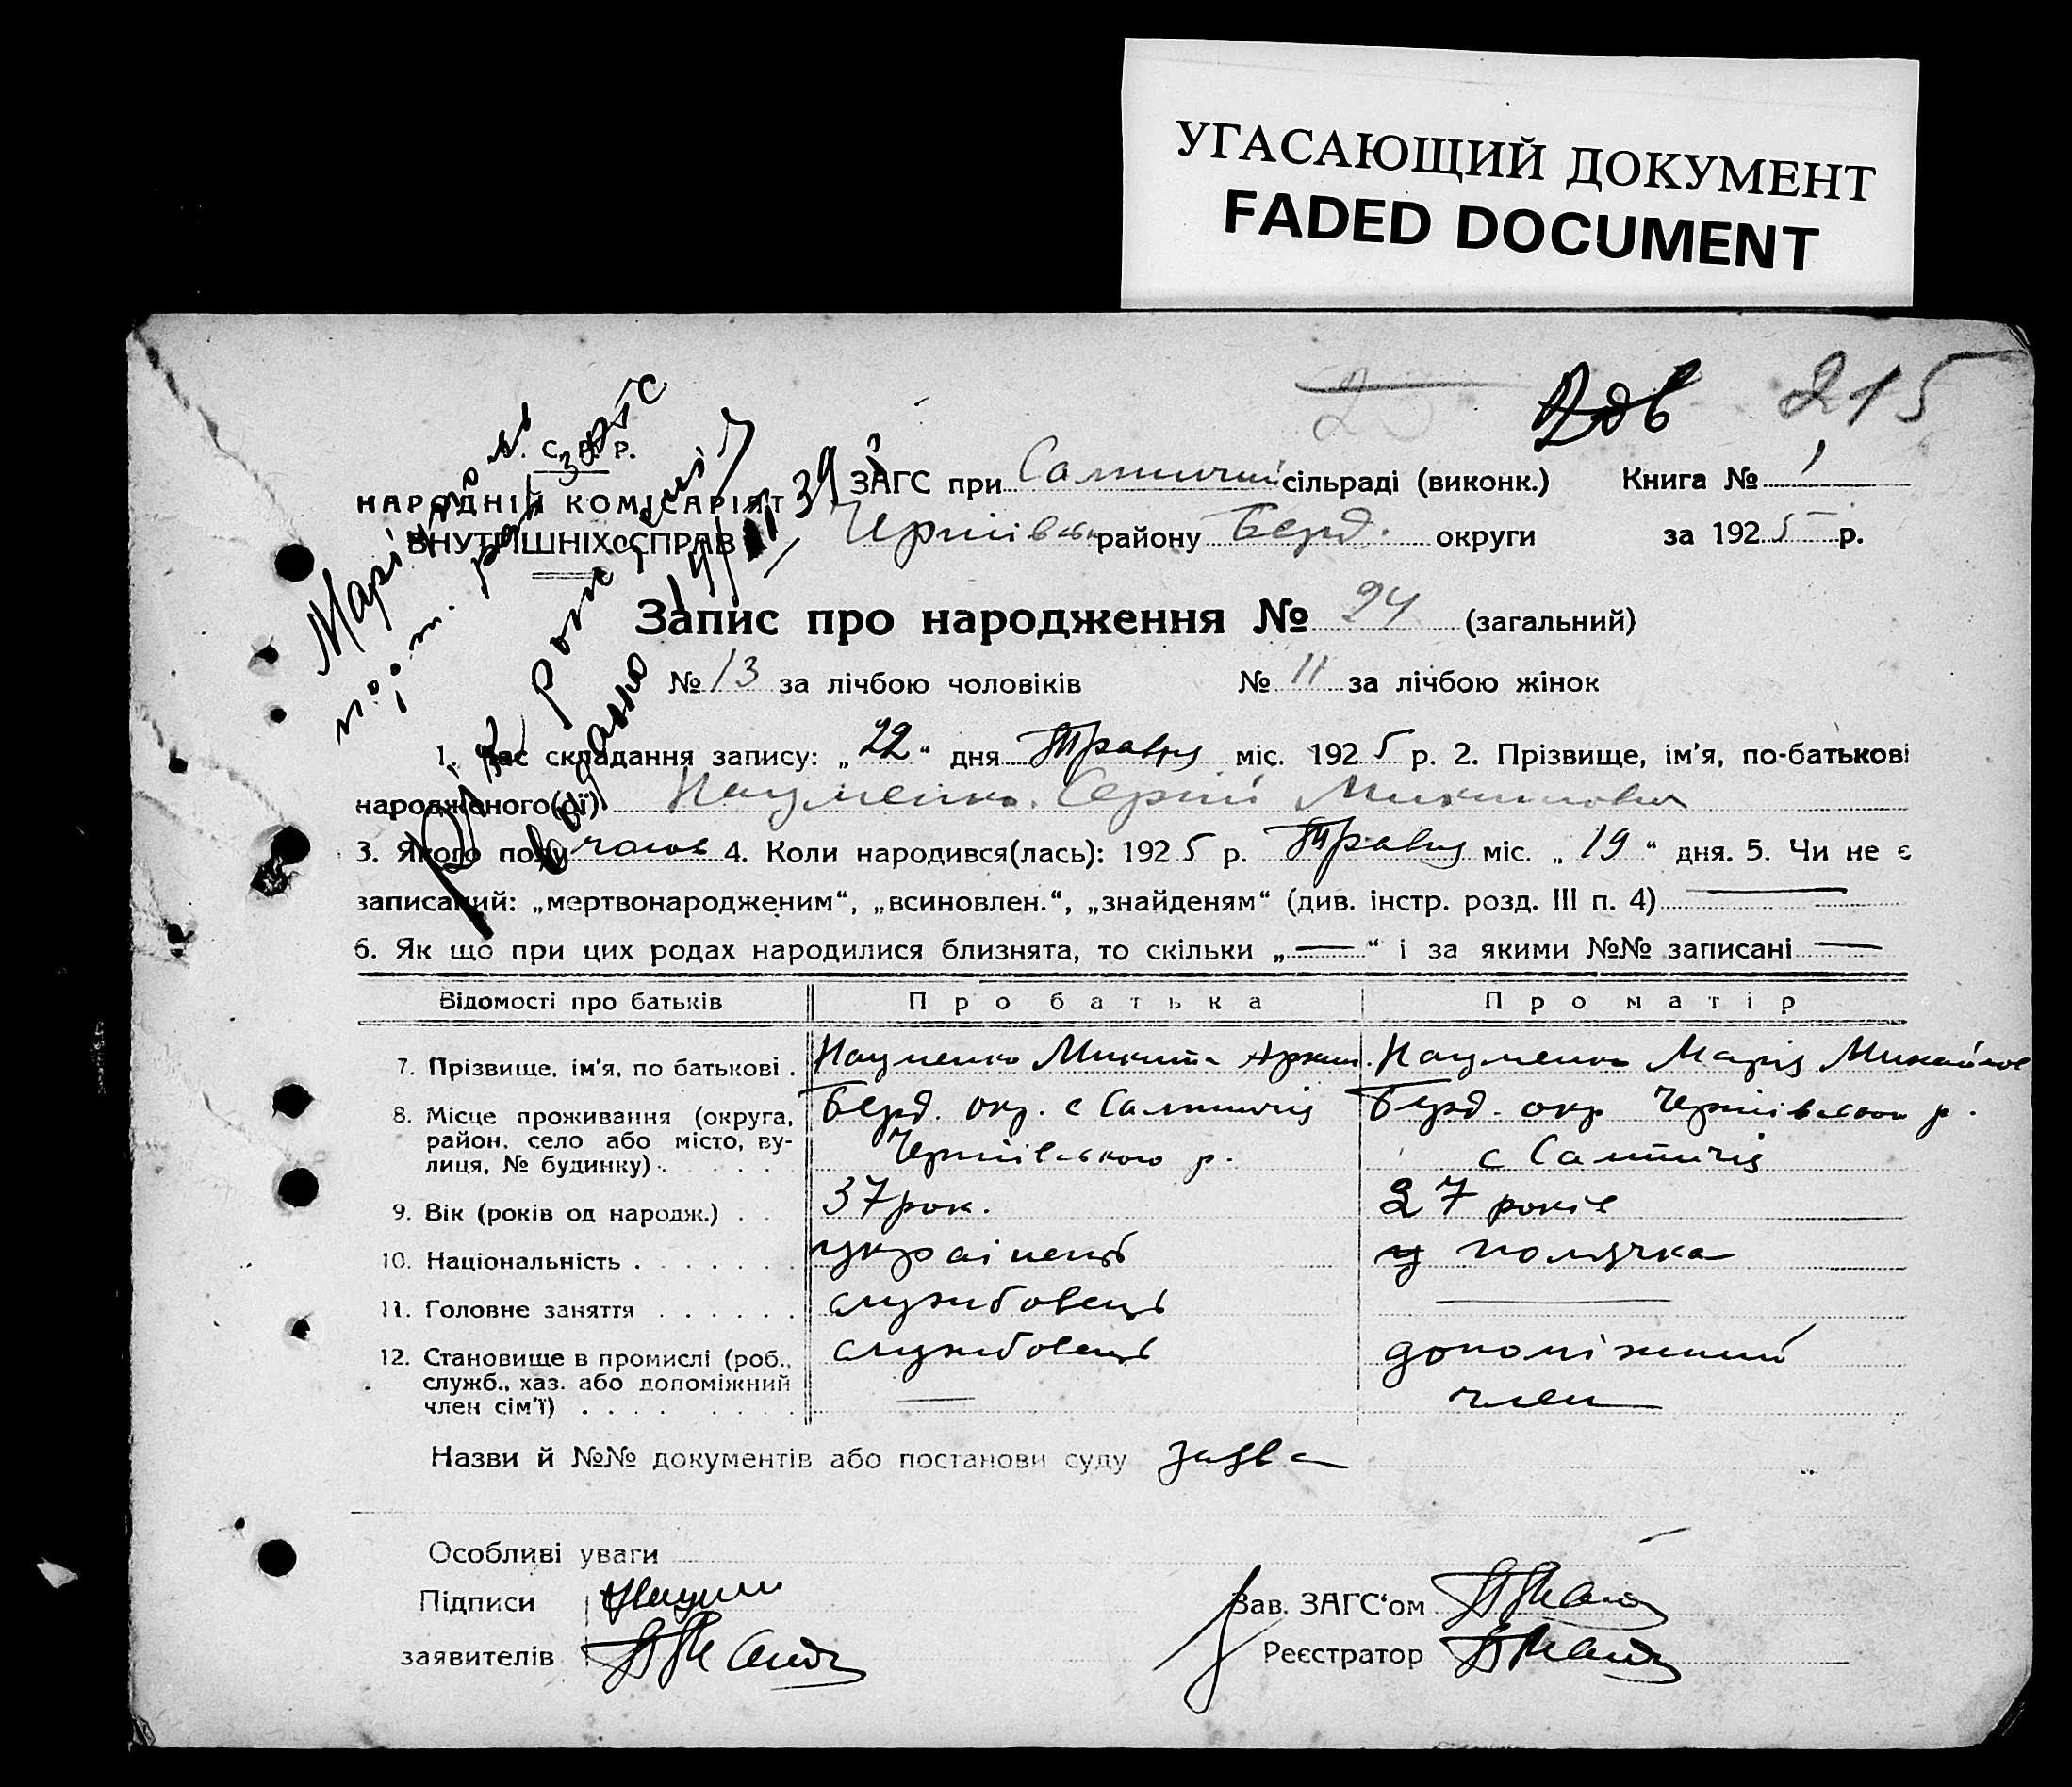 УГАСАЮЩИЙ ДОКУМЕНТ
FADED DOCUMENT
215
С. Р. Р.
НАРОДНІЙ КОМІСАРІЯТ
ВНУТРІШНІХ СПРАВ
ЗАГС при Салтичий сільраді (виконк.) Книга № 1
району Берд. округи за 1925 р.
Запис про народження № 24 (загальний)
№ 13 за лічбою чоловіків № 11 за лічбою жінок
1. Час складання запису: „22“ дня Травня міс. 1925 р. 2. Прізвище, ім'я, по-батькові
народженого(ої) Науменко Сергій Микитович
3. Якого полу чолов 4. Коли народився(лась): 1925 р. Травня міс. „19“ дня. 5. Чи не є
записаний: „мертвонародженим“, „всиновлен.“, „знайденям“ (див. інстр. розд. III п. 4) —
6. Як що при цих родах народилися близнята, то скільки „—“ і за якими №№ записані —
Відомості про батьків Про батька Про матір
7. Прізвище, ім'я, по батькові . Науменко Микита Науменко Марія Михайлов
8. Місце проживання (округа, район, село або місто, вулиця, № будинку) . Берд. окр. с Салтичія Берд. окр Чернігівського р.
Чернігівського р. с Салтичія
9. Вік (років од народж.) . . 37 рок. 27 років
10. Національність . . . . . . українець полячка
11. Головне заняття . . . . . . службовець —
12. Становище в промислі (роб., служб., хаз. або допоміжний член сім'ї) . . . . службовець допоміжний
— член
Назви й №№ документів або постанови суду заява
Особливі уваги
Підписи Зав. ЗАГС'ом
заявителів Реєстратор